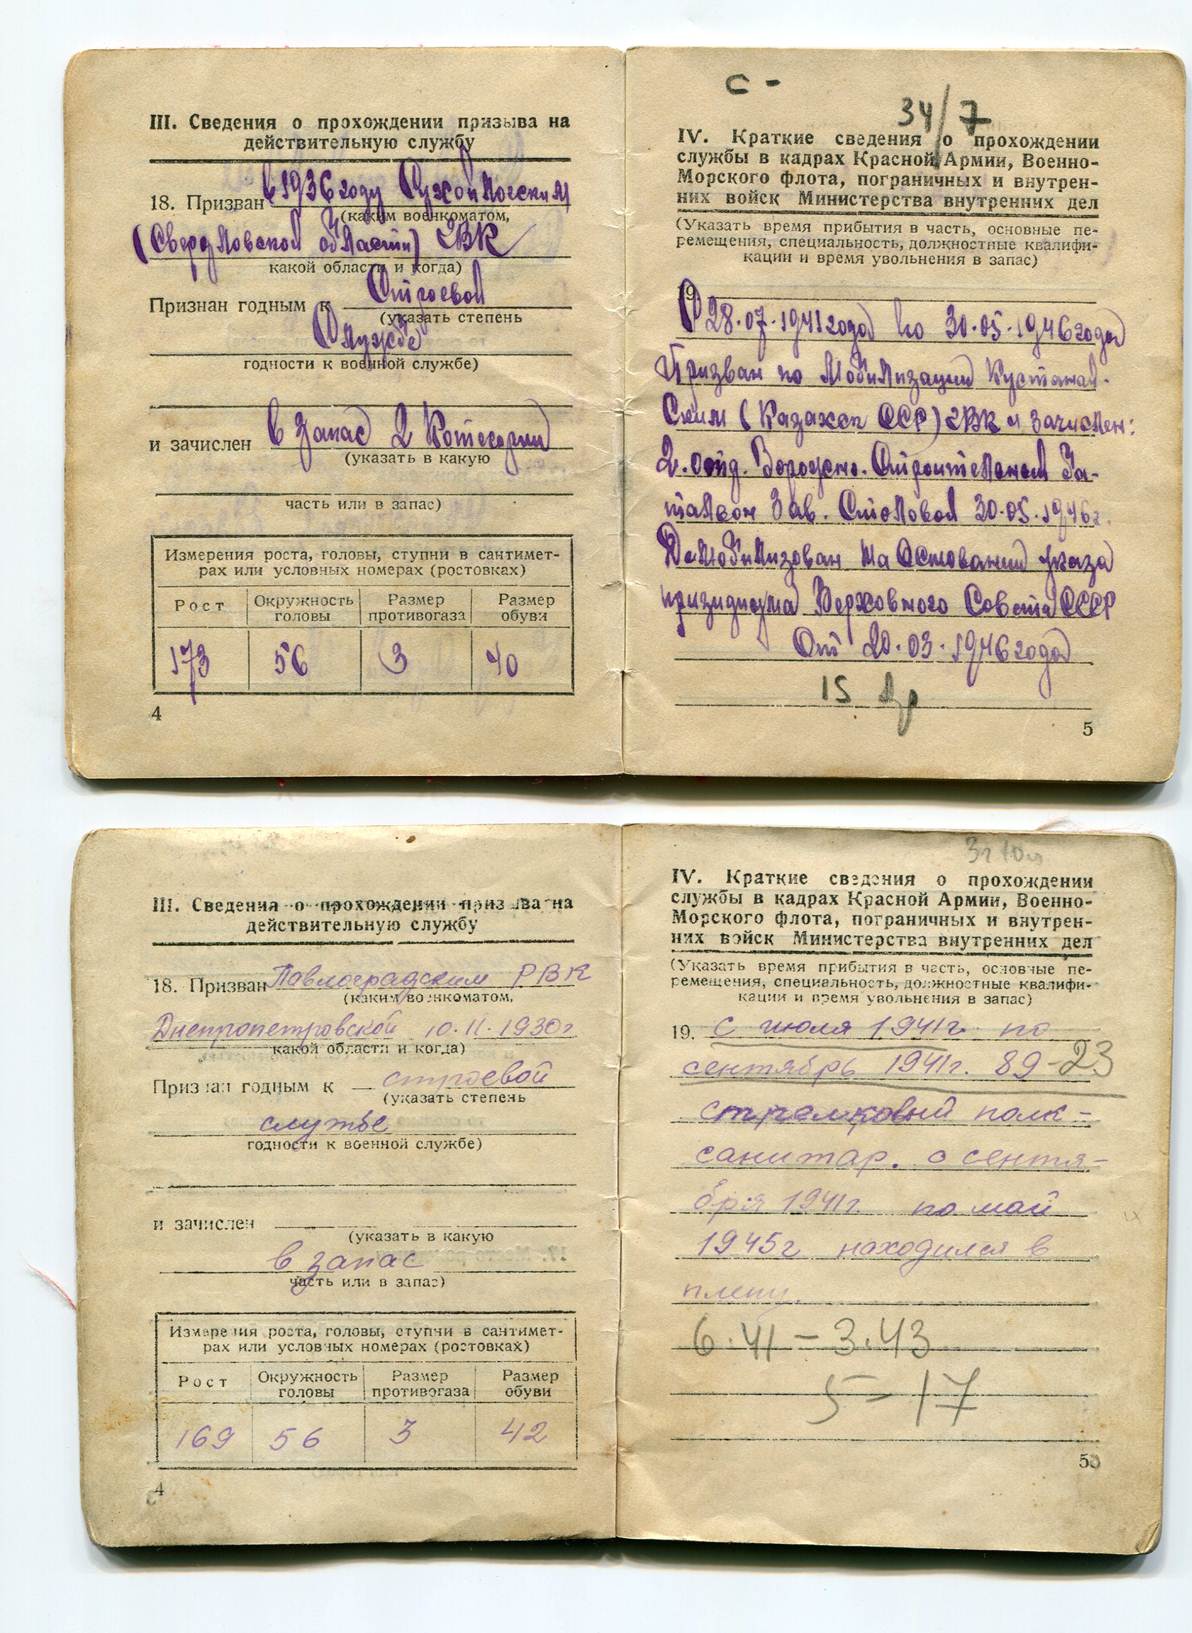 III. Сведения о прохождении призыва на
действительную службу
18. Призван в 1936 году Сухойлогским
(каким военкоматом,
(Свердловской области) РВК
какой области и когда)
Признан годным к Строевой
(указать степень
Службе
годности к военной службе)
и зачислен в запас 2 Котегории
(указать в какую
часть или в запас)
Измерения роста, головы, ступни в сантимет-
рах или условных номерах (ростовках)
Рост Окружность головы Размер противогаза Размер обуви
173 56 3 40
4
С -
34/7
IV. Краткие сведения о прохождении
службы в кадрах Красной Армии, Военно-
Морского флота, пограничных и внутрен-
них войск Министерства внутренних дел
(Указать время прибытия в часть, основные пе-
ремещения, специальность, должностные квалифи-
кации и время увольнения в запас)
19.
С 28.07.1941 года по 30.05.1946 года
Призван по Мобилизации Кустанай-
Ским (Казахск ССР) РВК и зачислен:
2. отд. Дорожно. Строительном Ба-
тальон Зав. Столовой 30.05.1946 г.
Демобилизован на Основании указа
призидиума Верховного Совета СССР
От 20.03.1946 года
15
5
III. Сведения о прохождении призыва на
действительную службу
18. Призван Павлоградским РВК
(каким военкоматом,
Днепропетровской 10.11.1930 г
какой области и когда)
Признан годным к строевой
(указать степень
службе
годности к военной службе)
и зачислен
(указать в какую
в запас
часть или в запас)
Измерения роста, головы, ступни в сантимет-
рах или условных номерах (ростовках)
Рост Окружность головы Размер противогаза Размер обуви
169 56 3 42
4
3г 10м
IV. Краткие сведения о прохождении
службы в кадрах Красной Армии, Военно-
Морского флота, пограничных и внутрен-
них войск Министерства внутренних дел
(Указать время прибытия в часть, основные пе-
ремещения, специальность, должностные квалифи-
кации и время увольнения в запас)
19. с июля 1941г. по
сентябрь 1941г. 89-23
стрелковый полк -
санитар. с сентя-
бря 1941г. по май
1945г находился в
плену.
6.41 - 3.43
5 - 17
5